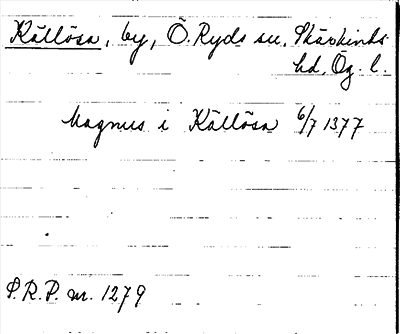 Källösa, by, Ö. Ryds sn, Skärkinds
hd, Ög. l.
Magnus i Källösa 6/7 1377
S.R.P. nr. 1279